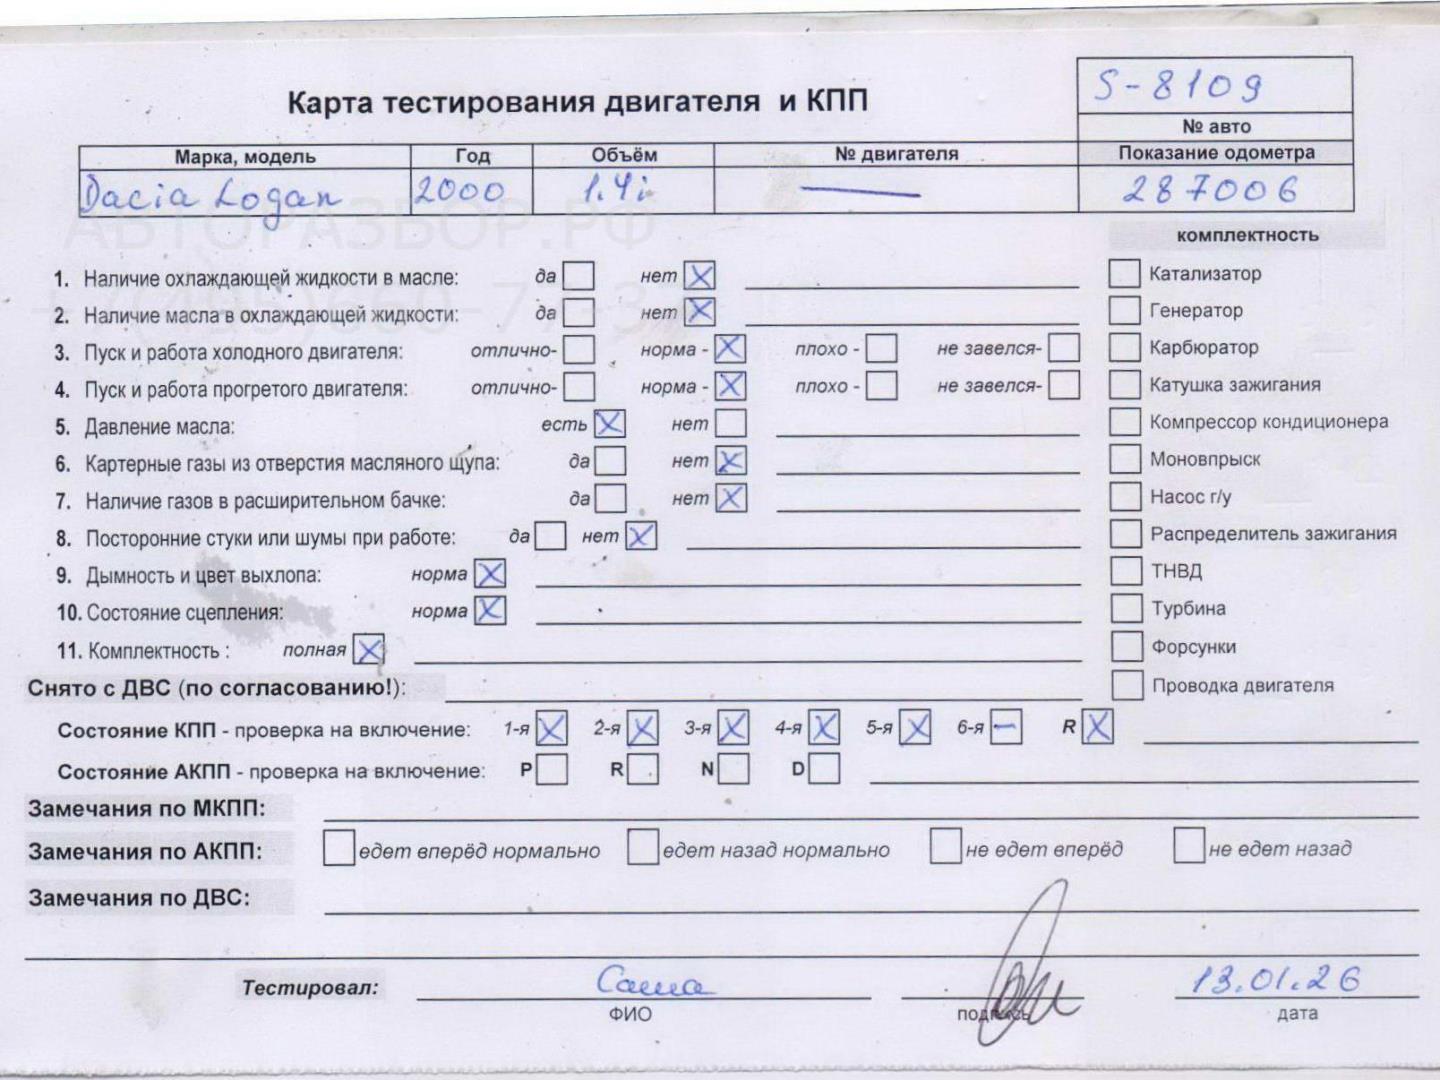 Карта тестирования двигателя и КПП
S-8109
№ авто
Марка, модель Год Объём № двигателя Показание одометра
Dacia Logan 2000 1.4i — 287006
АВТОРАЗБОР.РФ
комплектность
1. Наличие охлаждающей жидкости в масле: да нет X
Катализатор
+7(495)660-77-37
2. Наличие масла в охлаждающей жидкости: да нет X
Генератор
3. Пуск и работа холодного двигателя: отлично- норма - X плохо - не завелся-
Карбюратор
4. Пуск и работа прогретого двигателя: отлично- норма - X плохо - не завелся-
Катушка зажигания
5. Давление масла: есть X нет
Компрессор кондиционера
6. Картерные газы из отверстия масляного щупа: да нет X
Моновпрыск
7. Наличие газов в расширительном бачке: да нет X
Насос г/у
8. Посторонние стуки или шумы при работе: да нет X
Распределитель зажигания
9. Дымность и цвет выхлопа: норма X
ТНВД
10. Состояние сцепления: норма X
Турбина
11. Комплектность : полная X
Форсунки
Снято с ДВС (по согласованию!):
Проводка двигателя
Состояние КПП - проверка на включение: 1-я X 2-я X 3-я X 4-я X 5-я X 6-я — R X
Состояние АКПП - проверка на включение: P R N D
Замечания по МКПП:
Замечания по АКПП: едет вперёд нормально едет назад нормально не едет вперёд не едет назад
Замечания по ДВС:
Тестировал: Саша 13.01.26
ФИО подпись дата